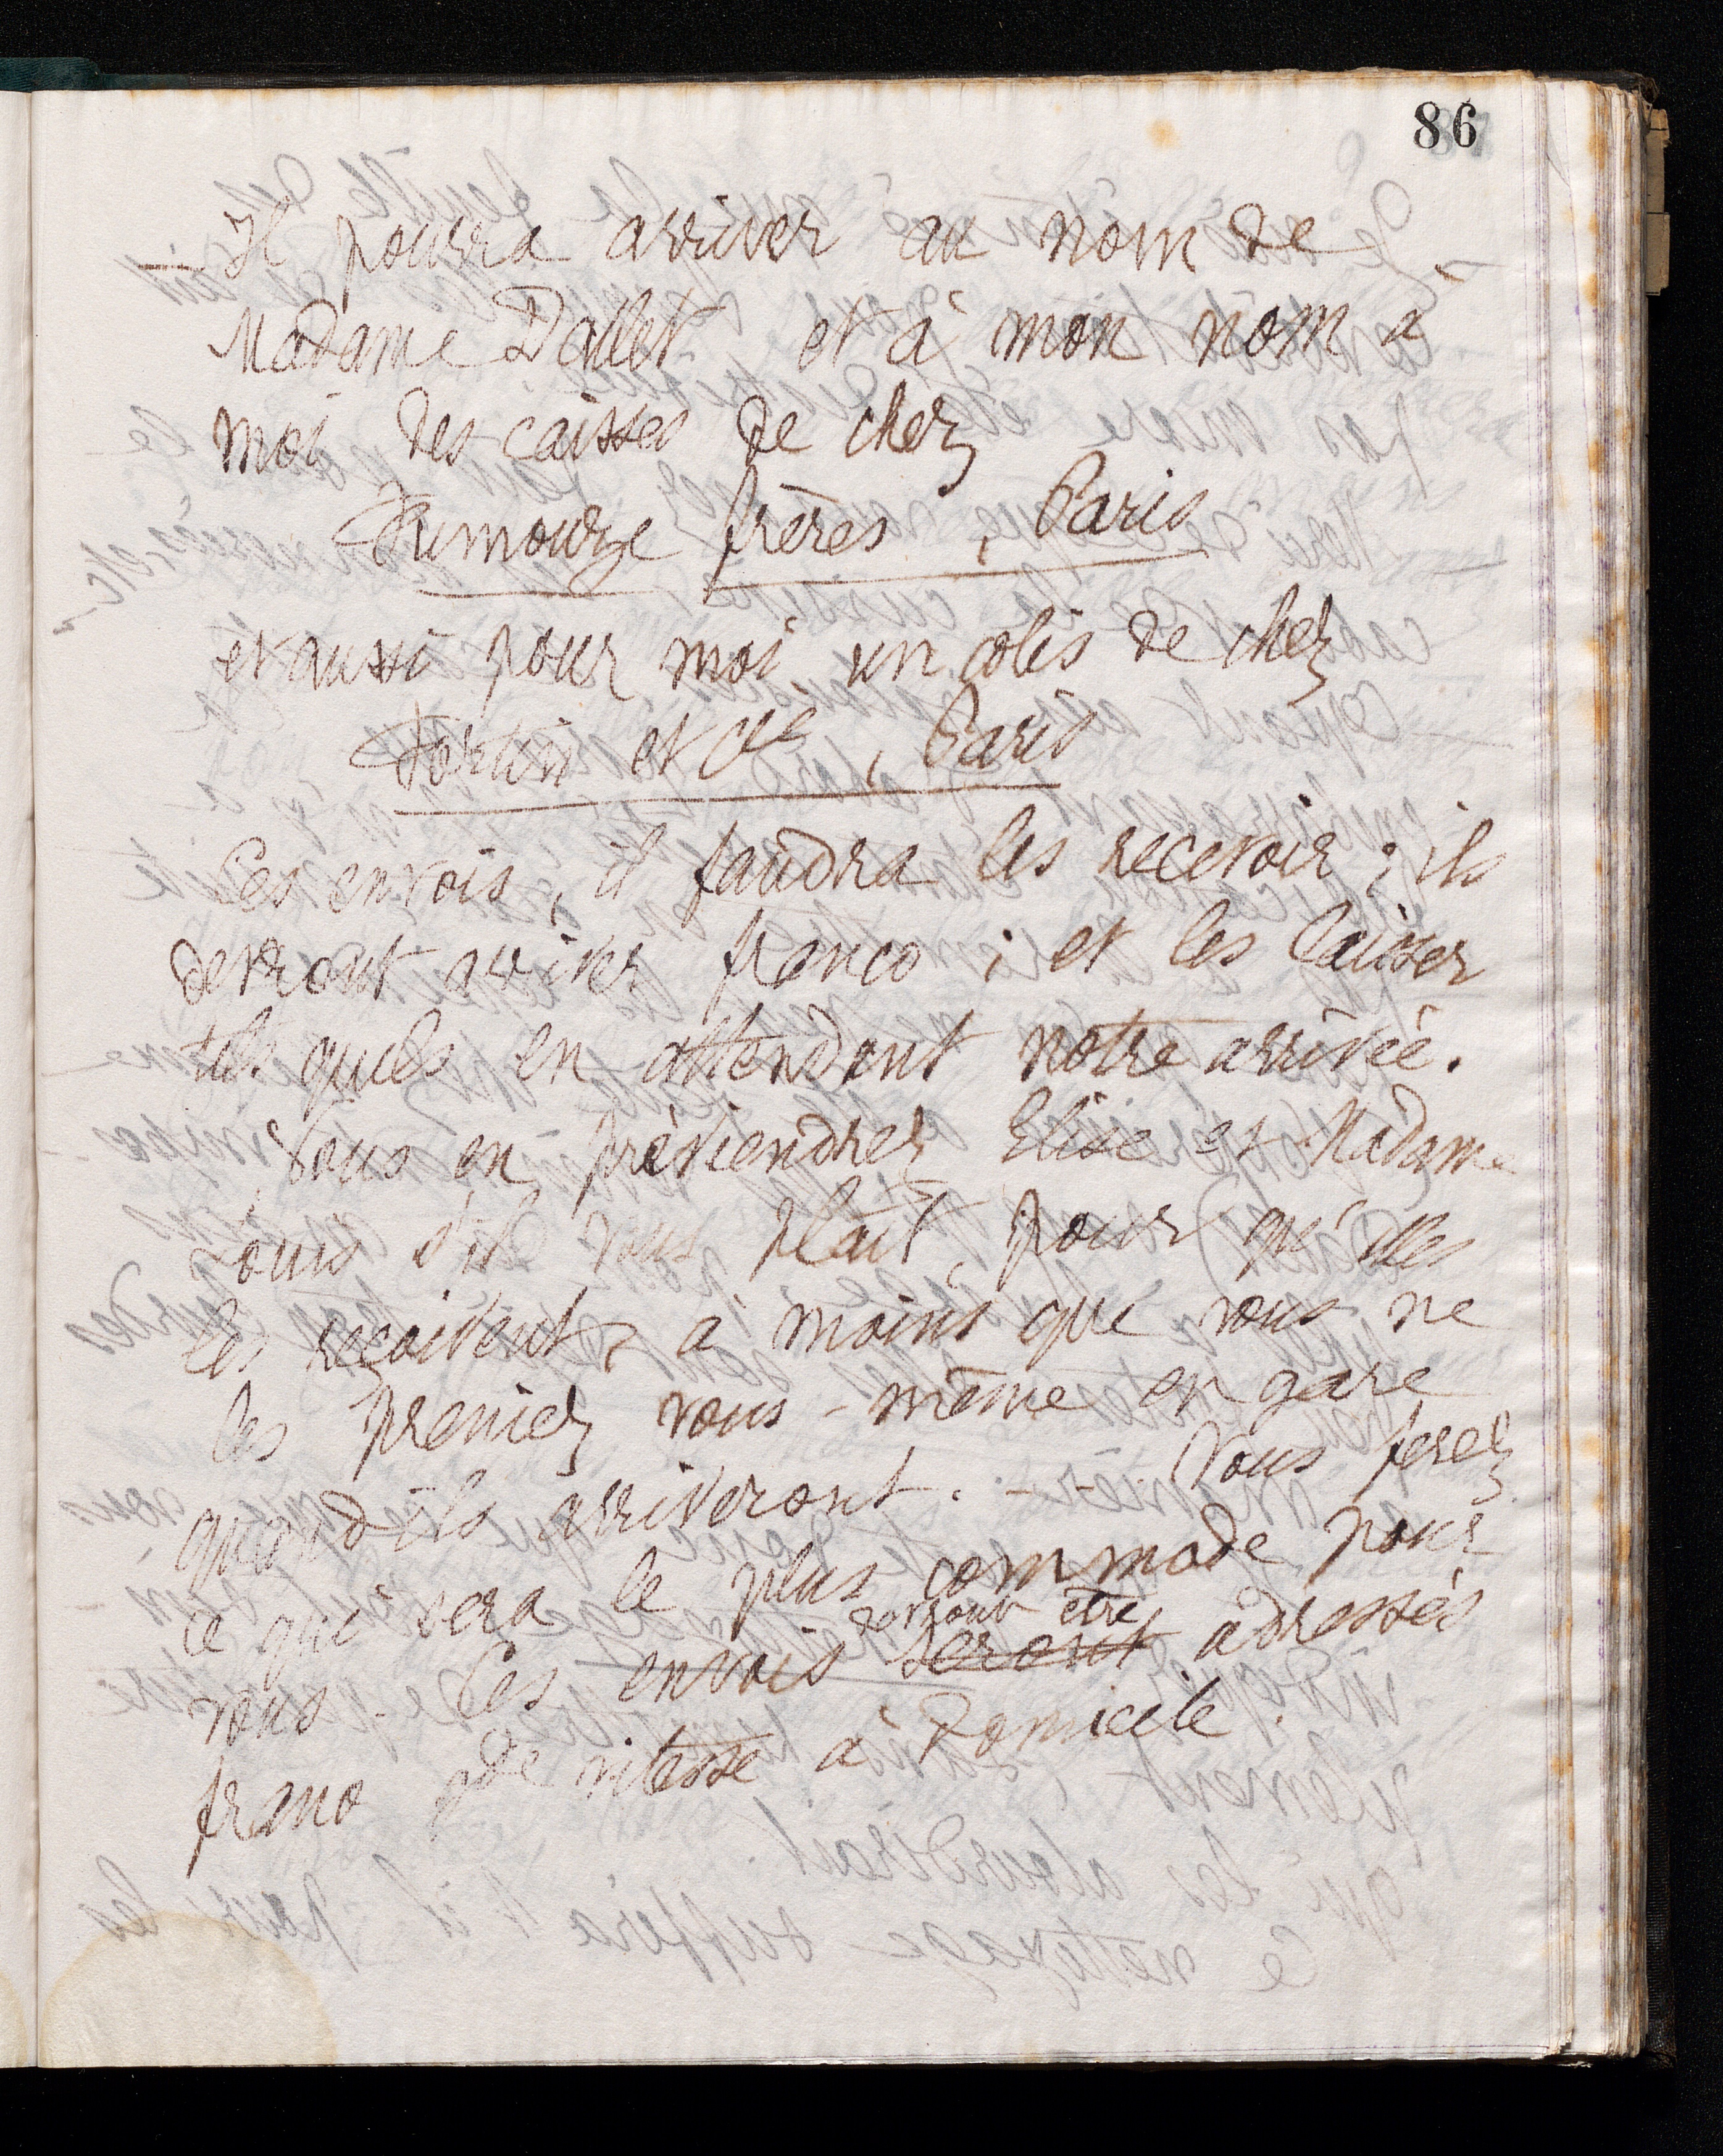 86
— Il pourra arriver au nom de
Madame Dallet et à mon nom à
moi des caisses de chez
Fumouze frères, Paris
et aussi pour moi un colis de chez
Fortin et Cie, Paris
Ces envois, il faudra les recevoir ; ils
devront arriver franco ; et les laisser
tels quels en attendant notre arrivée.
Vous en préviendrez Elise et Madame
Louis s'il vous plait, pour qu'elles
les reçoivent, à moins que vous ne
les preniez vous-même en gare
quand ils arriveront. - Vous ferez
ce qui sera le plus commode pour
vous - Ces envois seront devront être adressés
franco gde vitesse à domicile.